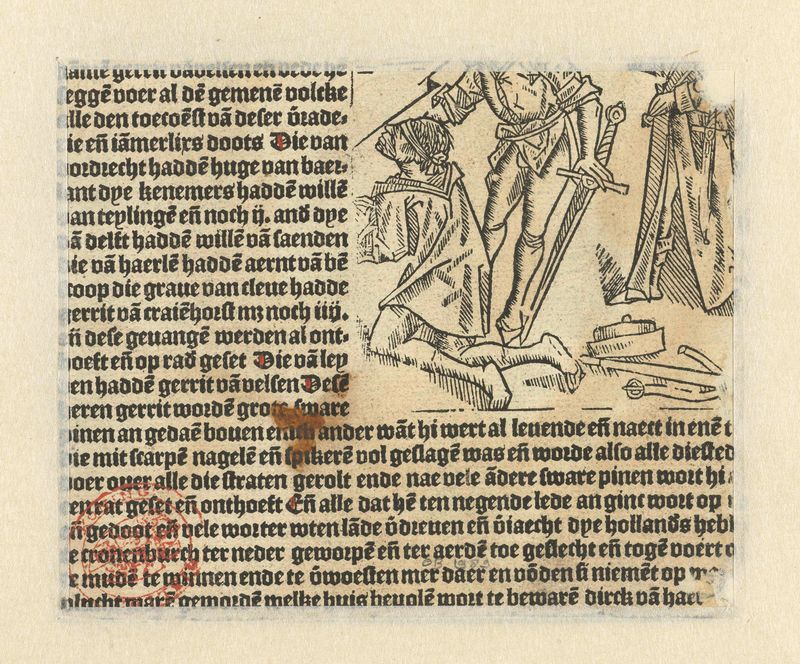 eggē voer al dē gemenē volcke
lle den toecoēst vā deser v̄rade-
ie eñ iāmerlixs doots Die van
ordrecht haddē huge van baer-
ant dye kenemers haddē willē
an teylingē eñ noch ij. and dye
ā delft haddē willē vā saenden
ie vā haerlē haddē aernt vā bē
coop die graue van cleue hadde
errit vā craiēhorst mz noch iiij.
ñ dese geuangē werden al ont-
hoeft eñ op rad geset Die vā ley
en haddē gerrit vā velsen Desē
eren gerrit wordē grote sware
inen an gedaē bouen ander wāt hi wert al leuende eñ naect in enē t
ie mit scarpē nagelē eñ spikerē vol geslagē was eñ worde also alle diested
oer ouer alle die straten gerolt ende nae vele ādere sware pinen wort hi
en rat geset eñ onthoeft Eñ alle dat hē ten negende lede an ginc wort op
ñ gedoot eñ vele worter wten lāde v̄dreuen eñ v̄iaecht dye hollands heb
e cronenburch ter neder geworpē eñ ter aerdē toe geslecht eñ togē voert
e mudē te winnen ende te v̄woesten mer daer en vōden si niemēt op
vā hae